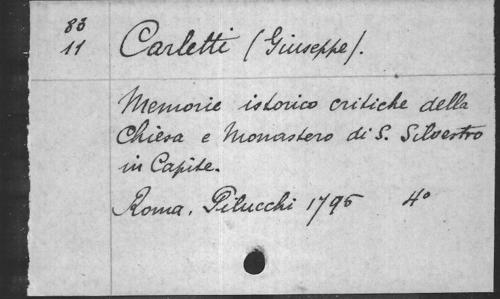 83
11
Carletti (Giuseppe).
Memorie istorico critiche della
Chiesa e Monastero di S. Silvestro
in Capite.
Roma. Pilucchi 1795 4°